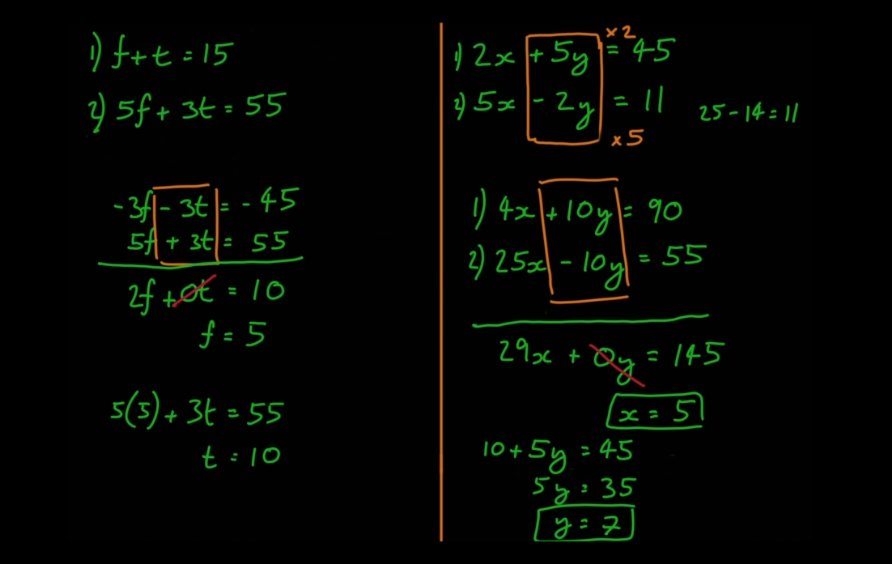 1) f + t = 15
2) 5f + 3t = 55
-3f - 3t = -45
5f + 3t = 55
2f + 0t = 10
f = 5
5(5) + 3t = 55
t = 10
×2
1) 2x + 5y = 45
2) 5x - 2y = 11
25 - 14 = 11
×5
1) 4x + 10y = 90
2) 25x - 10y = 55
29x + 0y = 145
x = 5
10 + 5y = 45
5y = 35
y = 7